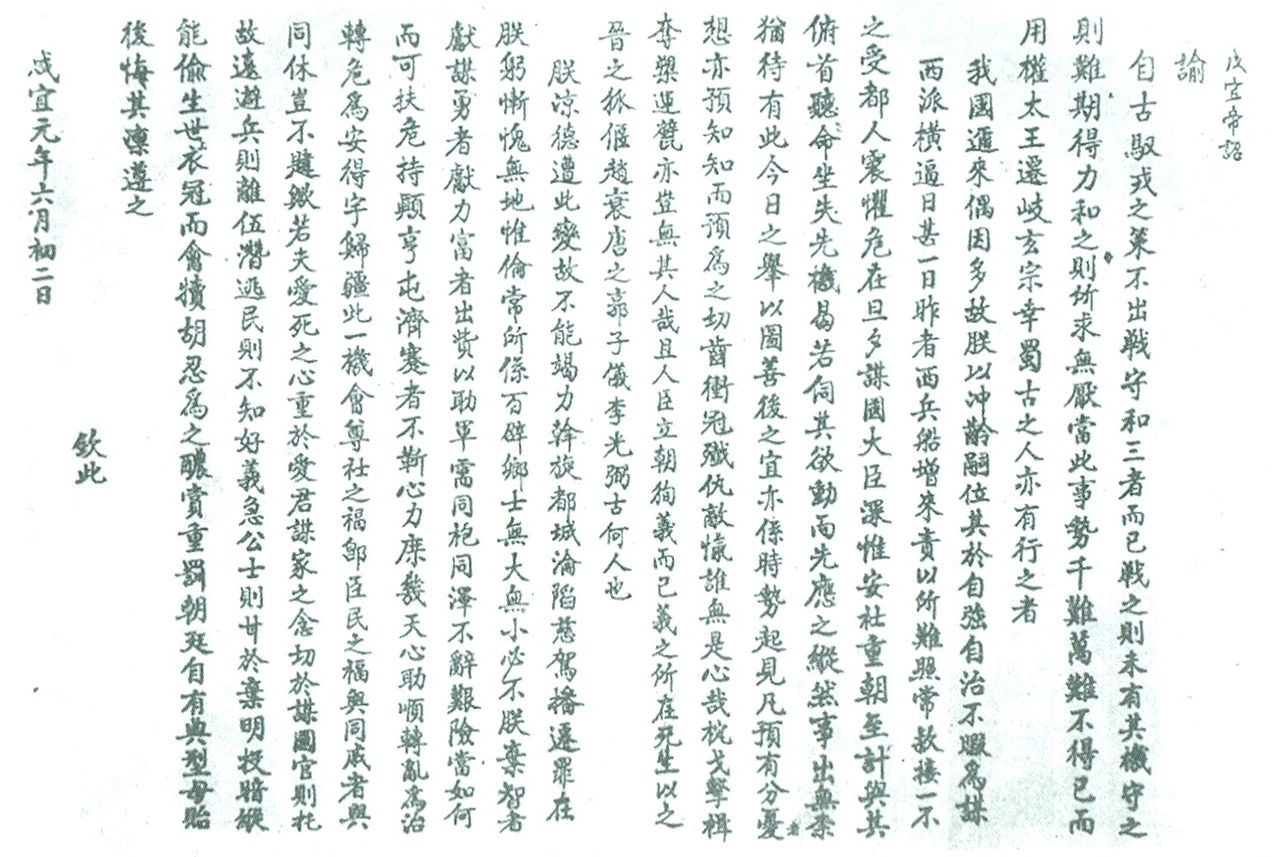 咸宜帝詔
諭
自古馭戎之策不出戰守和三者而已戰之則未有其機守之
則難期得力和之則所求無厭當此事勢千難萬難不得已而
用權太王遷岐玄宗幸蜀古之人亦有行之者
我國邇來偶因多故朕以冲齡嗣位其於自強自治不暇為謀
西派橫逼日甚一日昨者西兵船增來責以所難照常款接一不
之受都人震懼危在旦夕謀國大臣深惟安社重朝至計與其
俯首聽命坐失先機曷若伺其欲動而先應之縱然事出無柰
猶待有此今日之舉以圖善後之宜亦係時勢起見凡預有分憂者
想亦預知知而預為之切齒衝冠殲仇敵愾誰無是心哉枕戈擊楫
奪槊運甓亦豈無其人哉且人臣立朝狥義而已義之所在死生以之
晉之狐偃趙衰唐之郭子儀李光弼古何人也
朕凉德遭此變故不能竭力斡旋都城淪陷慈駕播遷罪在
朕躬慚愧無地惟倫常所係百辟鄉士無大無小必不朕棄智者
獻謀勇者獻力富者出貲以助軍需同袍同澤不辭艱險當如何
而可扶危持顚亨屯濟蹇者不靳心力庶幾天心助順轉亂為治
轉危為安得宇歸疆此一機會尊社之福卽臣民之福與同戚者與
同休豈不韙歟若夫愛死之心重於愛君謀家之念切於謀國官則托
故遠避兵則離伍潛逃民則不知好義急公士則甘於棄明投暗縱
能偷生世衣冠而會犢胡忍為之醲賞重罰朝廷自有典型毋貽
後悔其凜遵之
欽此
咸宜元年六月初二日